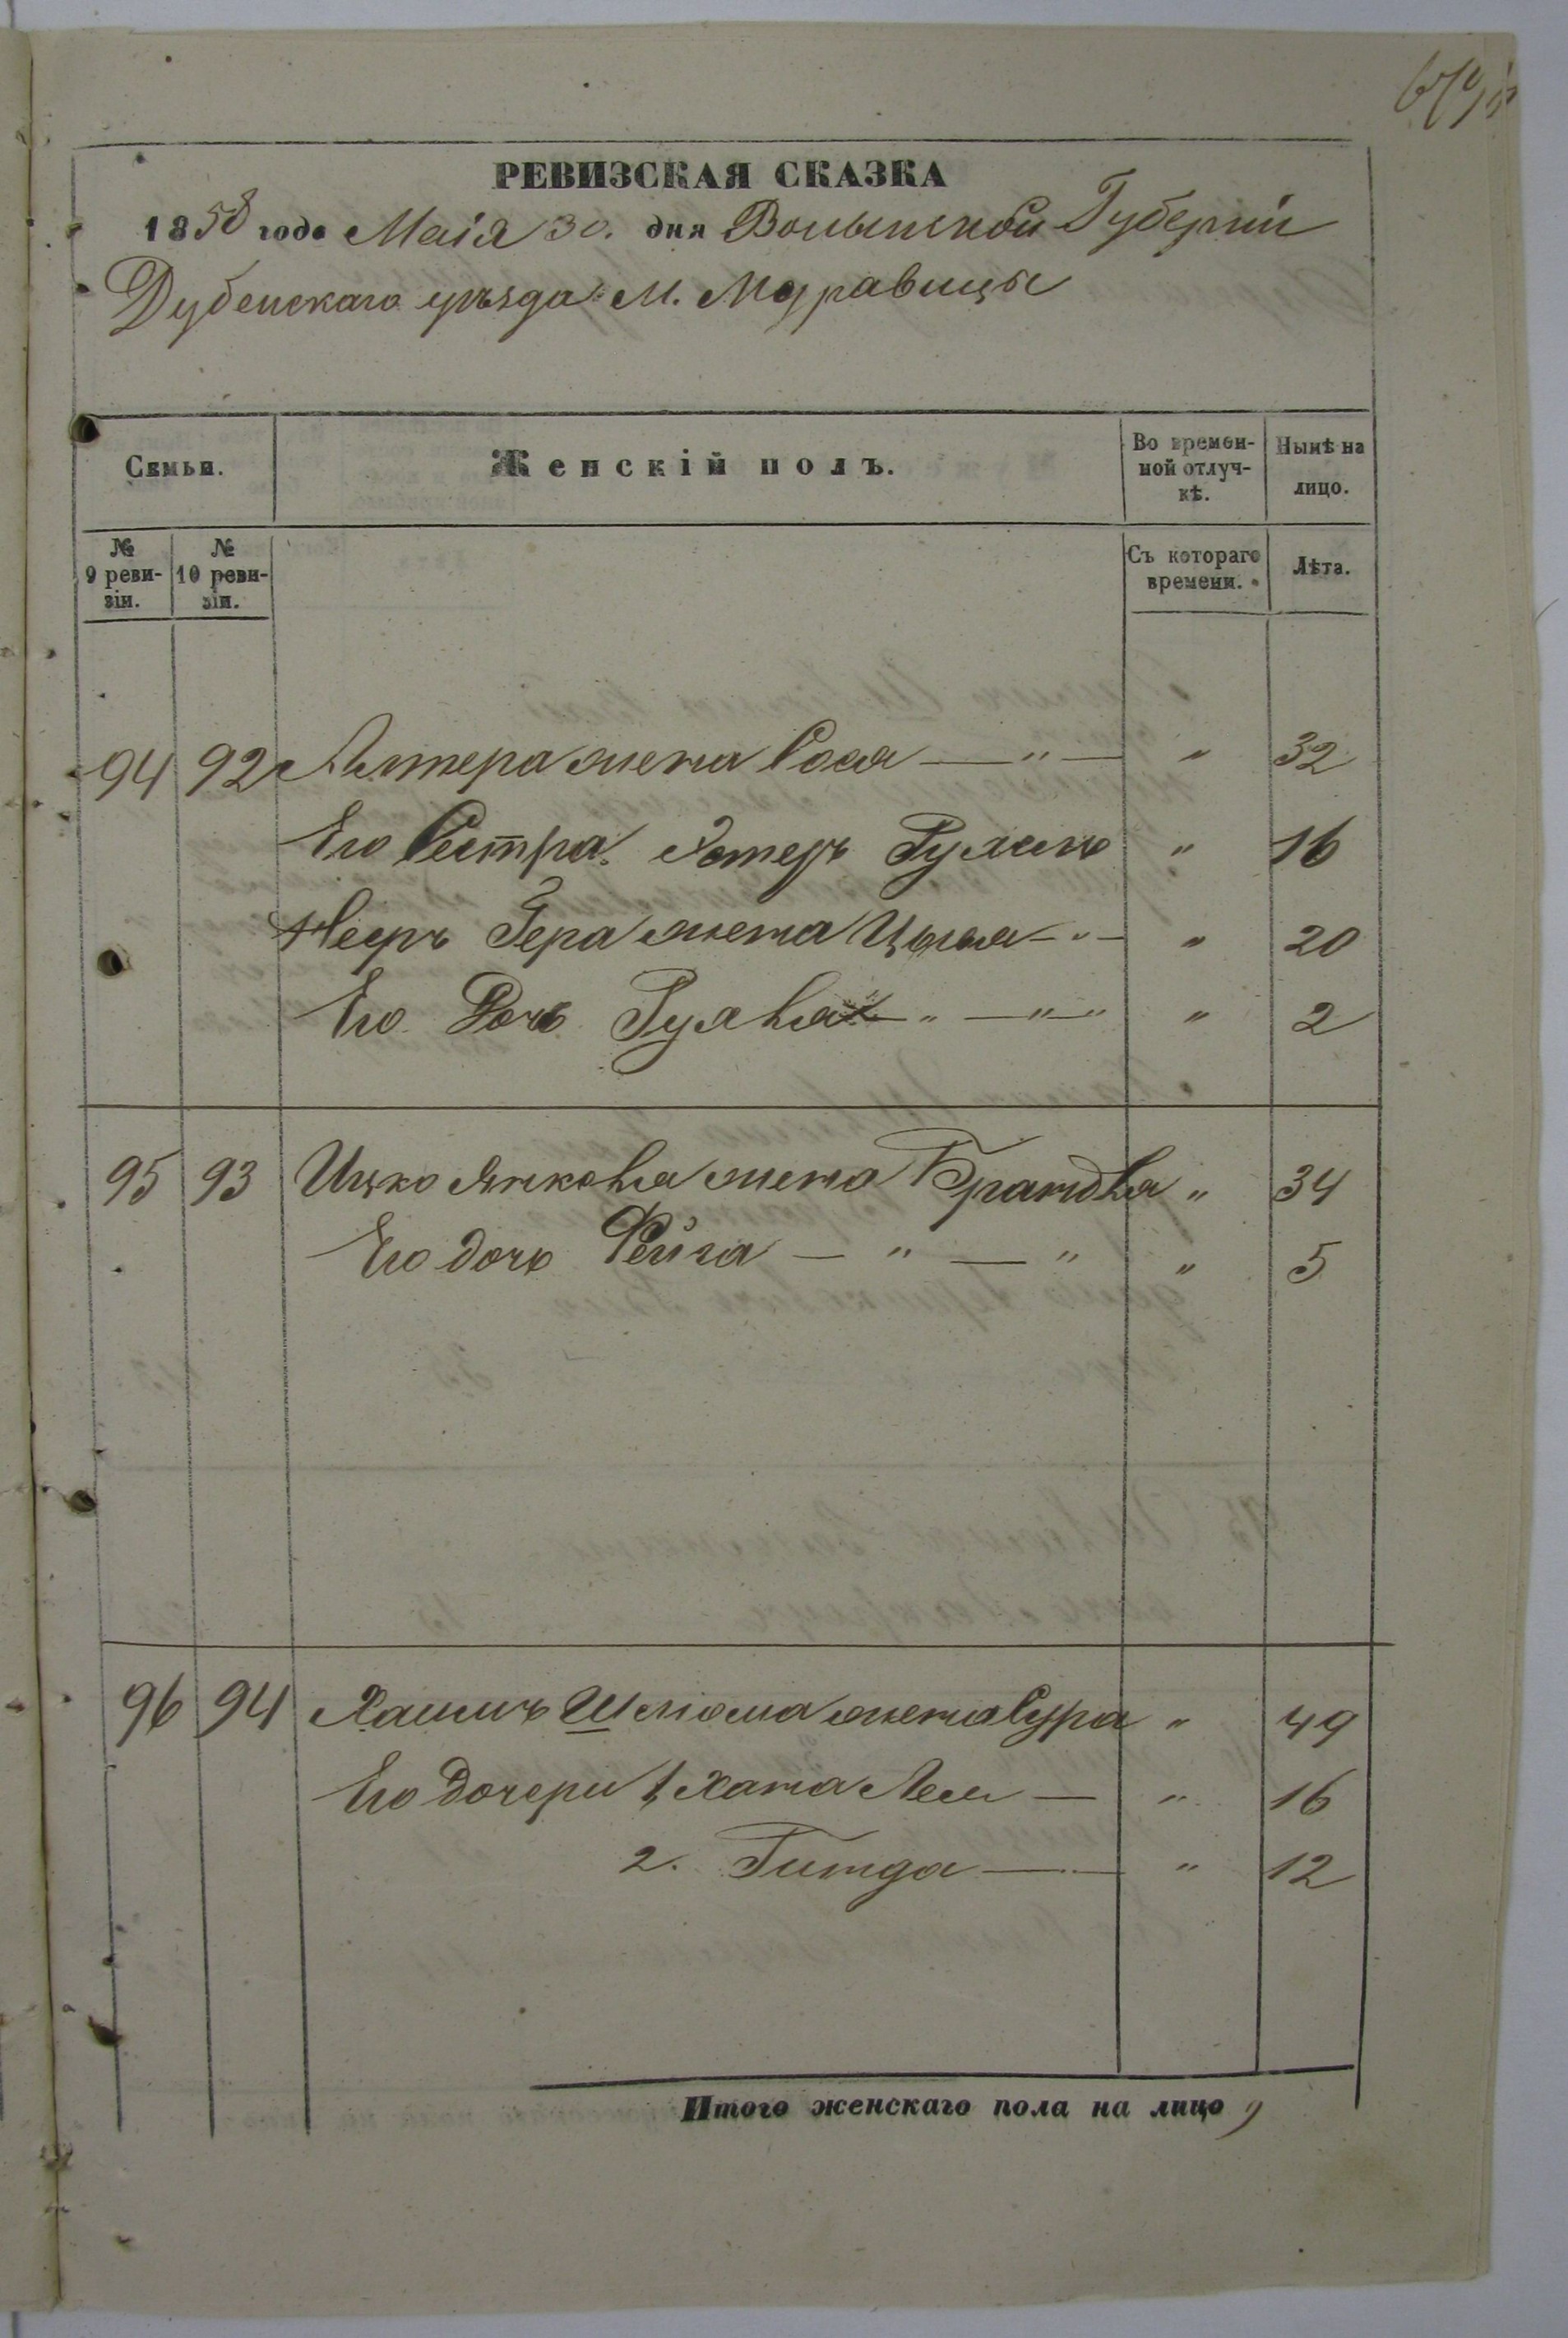 РЕВИЗСКАЯ СКАЗКА
1858 года Маія 30. дня Волынской Губерніи
Дубенскаго уѣзда М. Муравицы
Семьи.
Женскій полъ.
Во времен-
ной отлуч-
кѣ.
Нынѣ на
лицо.
№
9 реви-
зіи.
№
10 реви-
зіи.
Съ котораго
времени.
Лѣта.
94 92 Алтера жена Сося — " — " 32
Его Сестра Эстеръ Рухль " 16
Гера жена Цывья - " - " 20
Его Дочь Рухля - " - " " 2
95 93 Ицко Янкеля жена Брандля " 34
Его дочь Фейга — " — " " 5
96 94 Хаимъ Шлиома жена Сура " 49
Его дочери 1, Хана Лея — " 16
2. Гитда — " 12
Итого женскаго пола на лицо 9